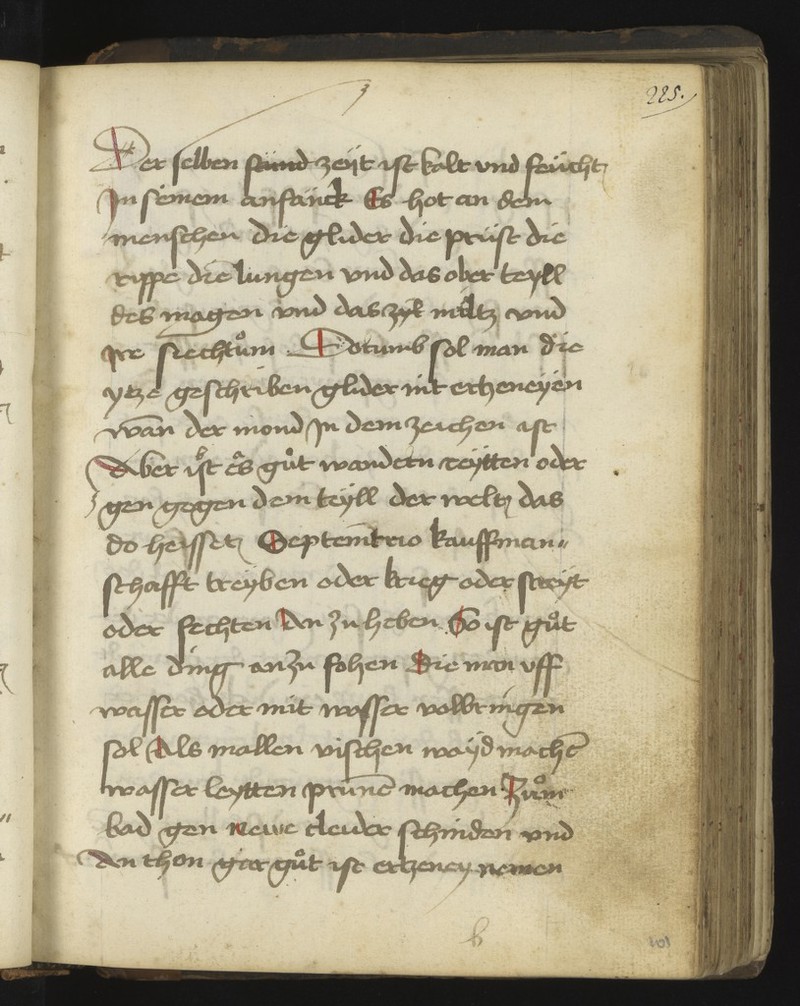 225.
Der selben stund zeÿt ist kalt vnd feücht
In seinem anfanck Es hot an dem
menschen die glider die prüst die
rippe die lungen vnd das ober teÿll
des magen vnd das zyl miltz vnd
ire siechtům Dorumb sol man die
ytze geschriben glider nit ertzeneÿen
wan der mond In dem zeichen ist
Aber ist es gůt wandern reÿtten oder
gen gegen dem teÿll der welt das
do heisset Septemtrio kauffman„
schafft treÿben oder krieg oder streÿt
oder fechten An zu heben So ist gůt
alle ding an zu fohen Die man vff
wasser oder mit wasser volbringen
sol Als mallen vischen waÿd machē
wasser leÿtten prunnē machen Zům
bad gen newe cleider schinden vnd
An thon gar gůt ist ertzeneÿ nemen
101